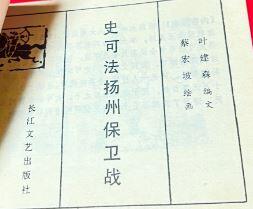 叶建森编文
蔡宏坡绘画
史可法扬州保卫战
长江文艺出版社